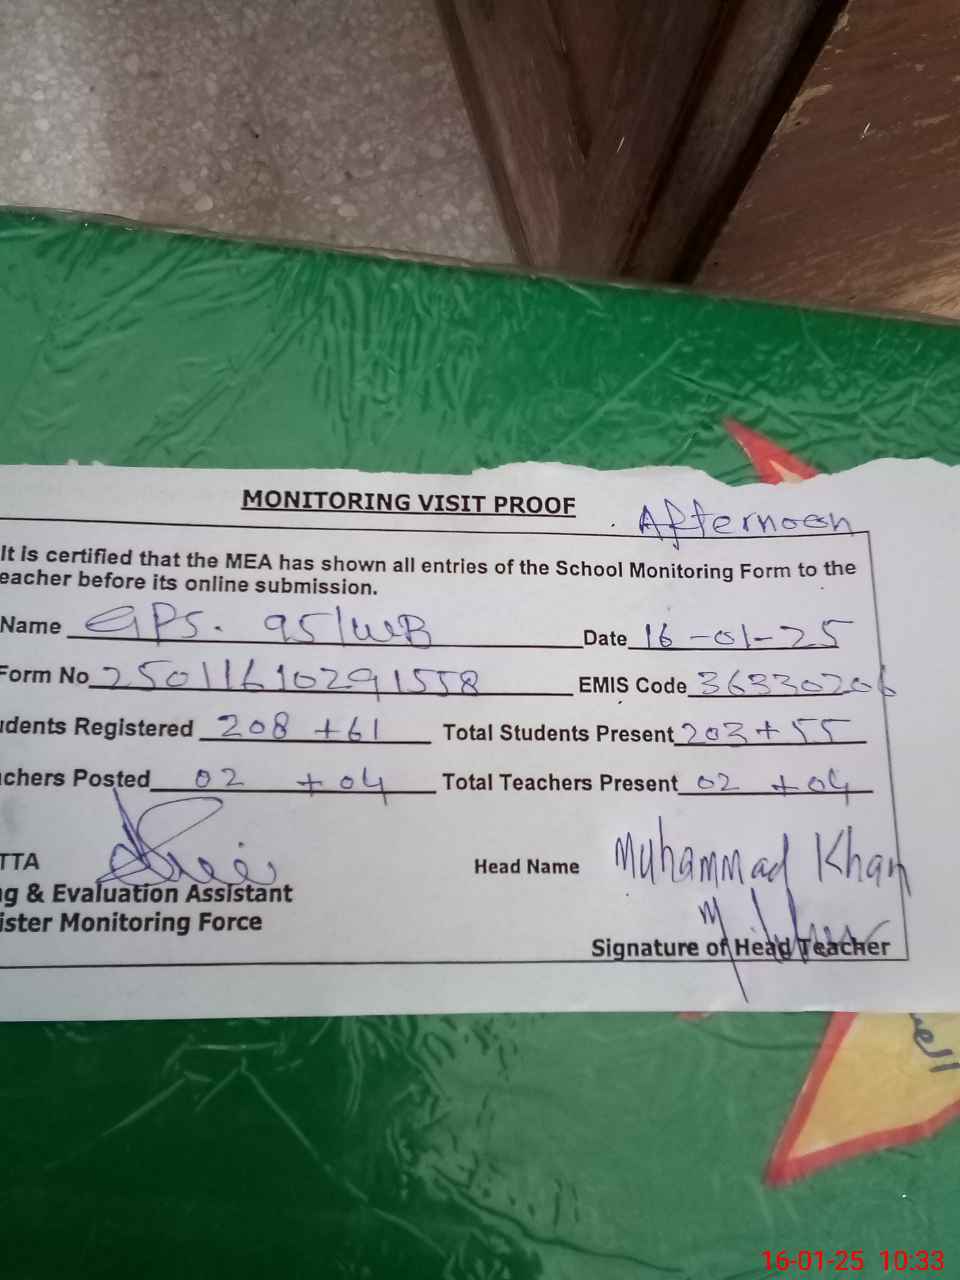 MONITORING VISIT PROOF
Afternoon
It is certified that the MEA has shown all entries of the School Monitoring Form to the
eacher before its online submission.
Name GPS. 95/WB Date 16-01-25
Form No 25011610291558 EMIS Code 36330206
udents Registered 208 +61 Total Students Present 203+55
chers Posted 02 +04 Total Teachers Present 02 +04
TTA Head Name Muhammad Khan
g & Evaluation Assistant
ister Monitoring Force
Signature of Head Teacher
16-01-25 10:33